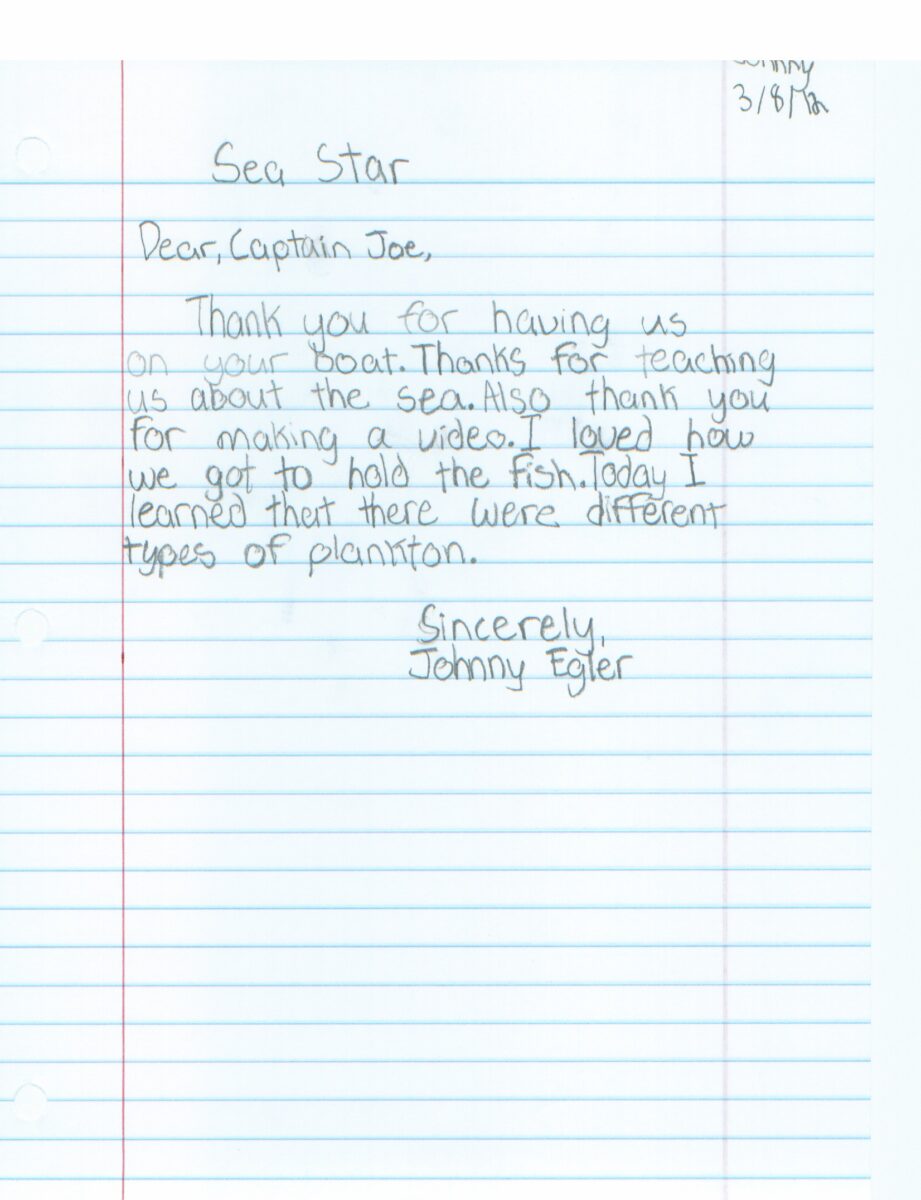 Johnny
3/8/12
Sea Star
Dear, Captain Joe,
Thank you for having us
on your boat. Thanks for teaching
us about the sea. Also thank you
for making a video. I loved how
we got to hold the fish. Today I
learned that there were different
types of plankton.
Sincerely,
Johnny Egler